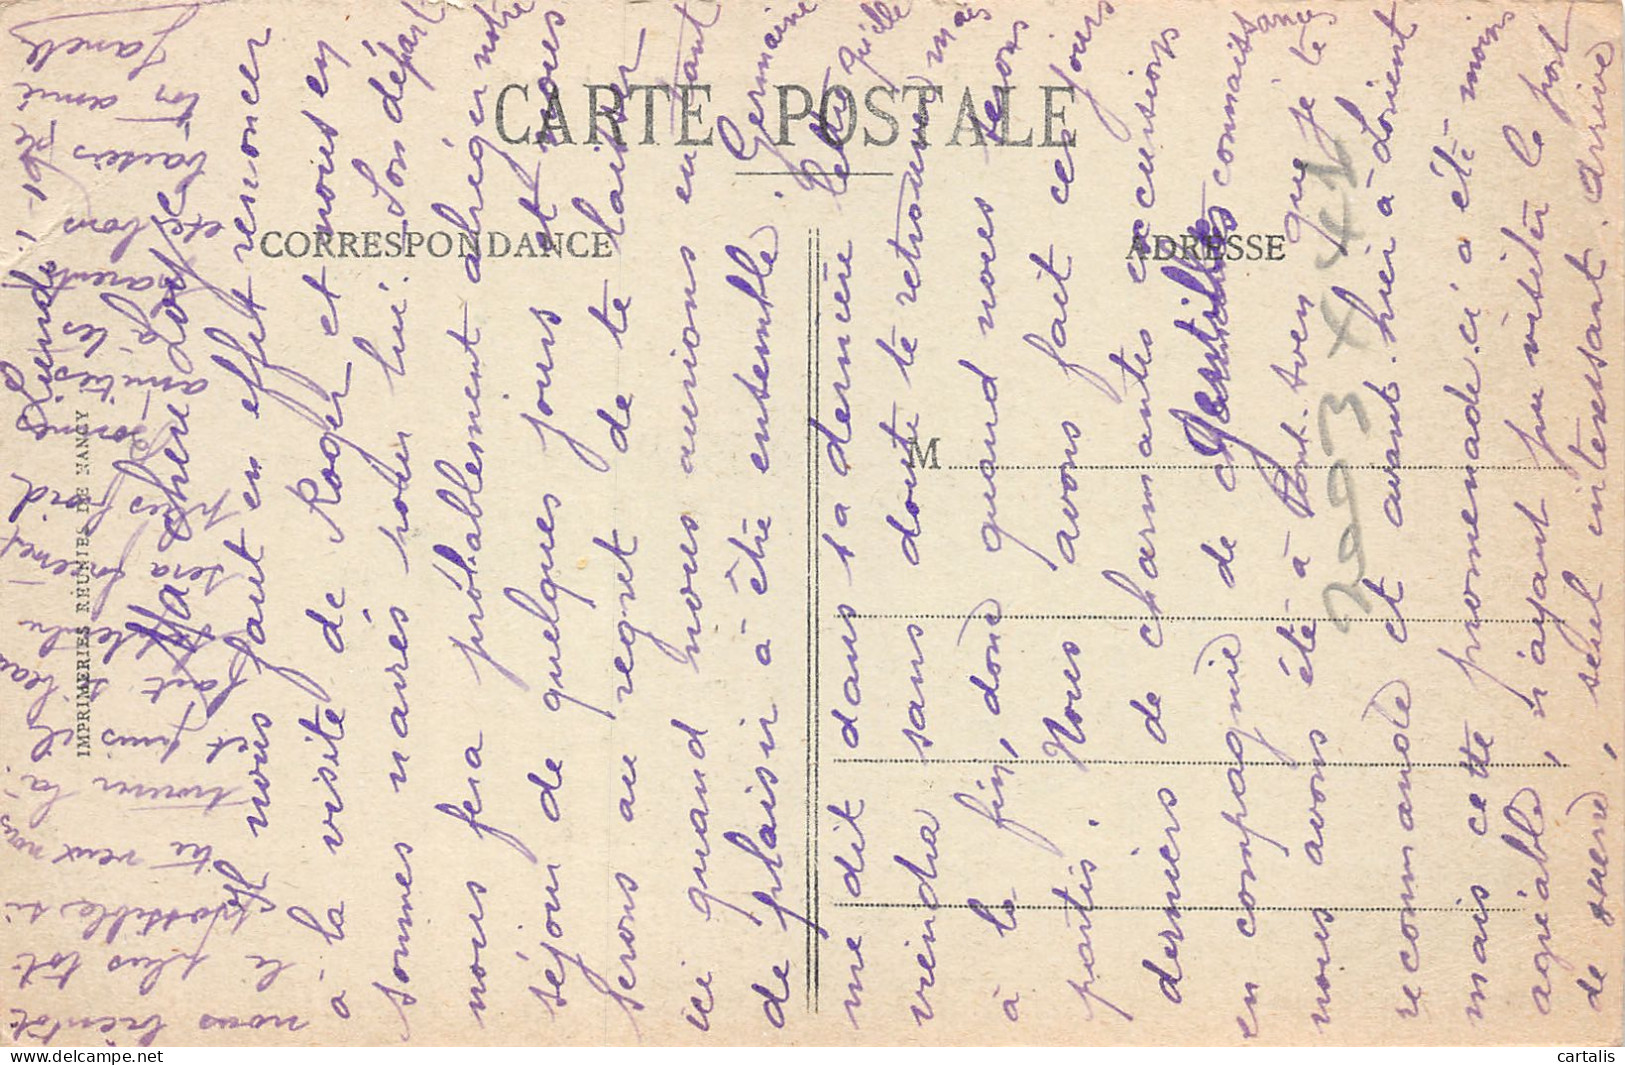 CARTE POSTALE
CORRESPONDANCE
ADRESSE
M
IMPRIMERIES REUNIES DE NANCY
Lundi
Ma chère Lou
Il nous faut en effet renoncer
à la visite de Roger et nous en
sommes navrés pour lui. Son départ
nous fera probablement abréger notre
séjour de quelques jours et nous
serons au regret de te laisser
ici quand nous aurions eu tant
de plaisir à être ensemble. Germaine
me dit dans sa dernière lettre qu'elle
viendra sans doute te retrouver mais
à la fin, donc quand nous serons
partis. Nous avons fait ces jours
derniers de charmantes excursions
en compagnie de gentilles connaissances
nous avons été à Pont-Aven que je te
recommande et avant hier à Lorient
mais cette promenade ci a été moins
agréable, n'ayant pu visiter le port
de guerre, seul intéressant. Arrive
nous bientôt
le plus tôt
possible si
tu veux nous
trouver là!
et puis il
faut si beau
sera
plus froid
Bonnes
amitiés
à tes
parents
et bons
baisers de
ton amie
2093 X 41
cartalis